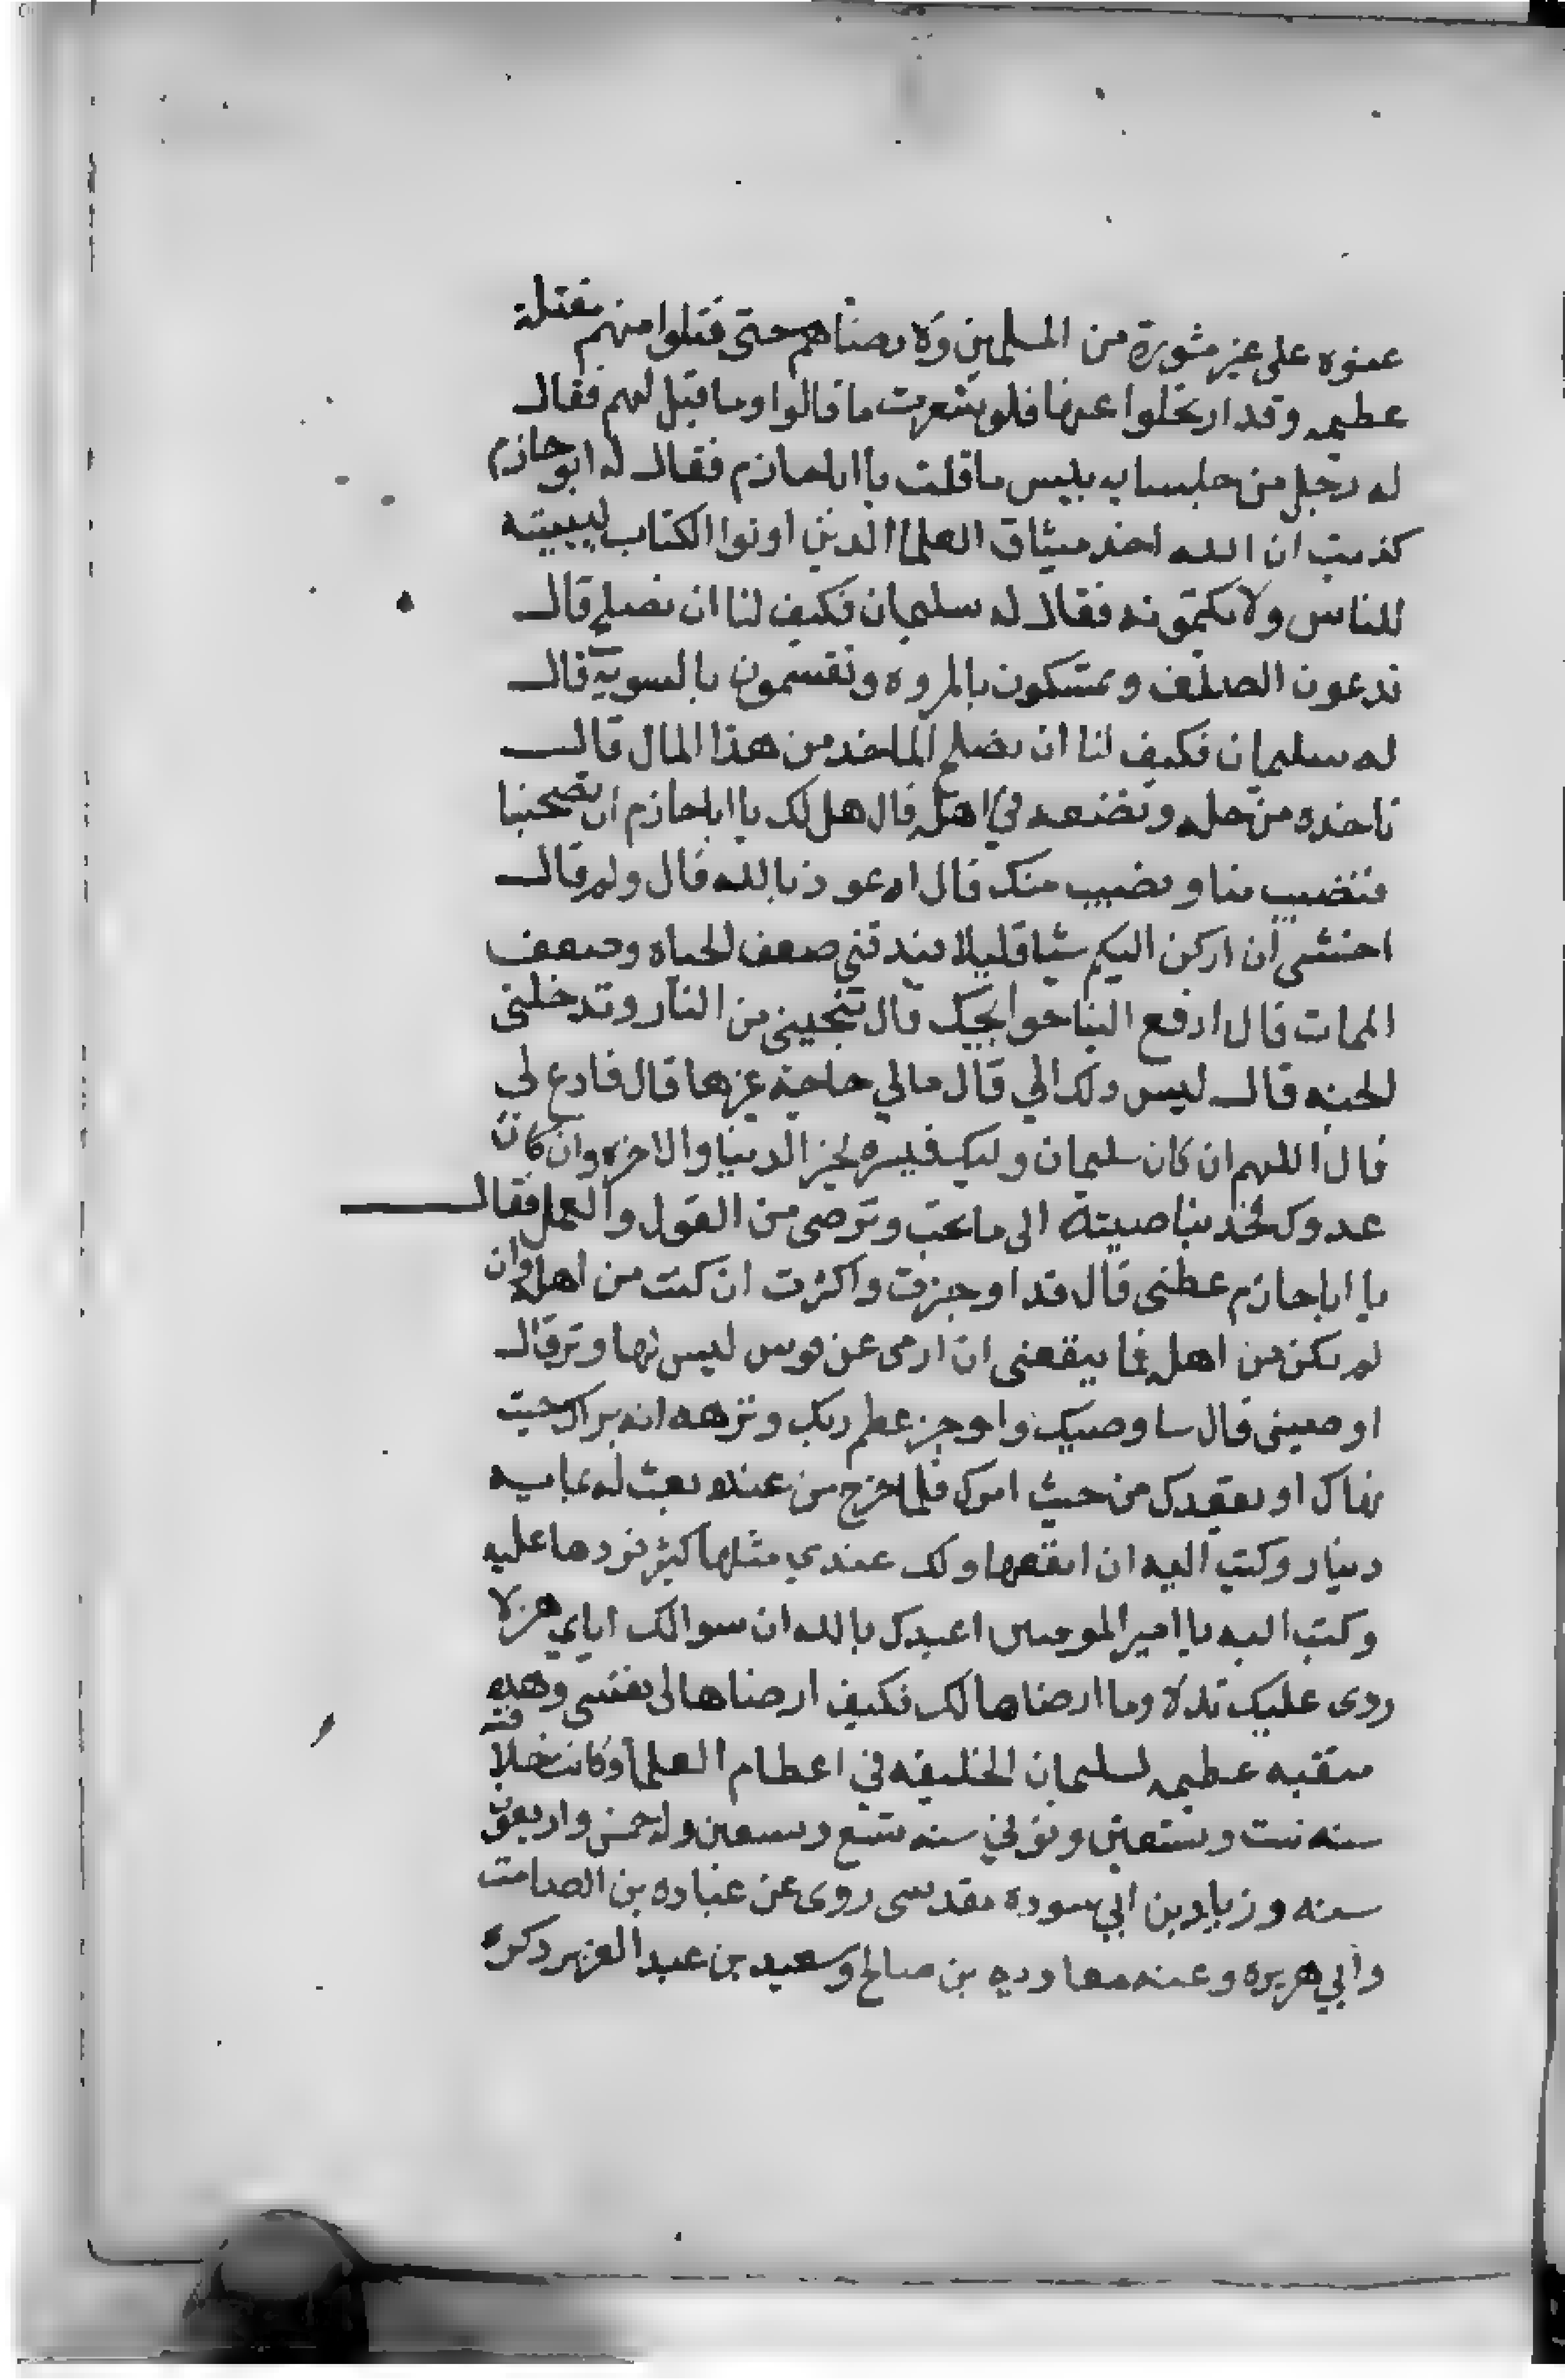 عنوه على غير مشورة من المسلمين ولا رضاهم حتى قتلوا منهم مقتلة
عظيمه وقد ارتحلوا عنها فلو شعرت ما قالوا وما قيل لهم فقال
له رجل من جلسايه بيس ما قلت يا ابا حازم فقال له ابو حازم
كذبت ان الله اخذ ميثاق العلما الدين اوتوا الكتاب ليبيننه
للناس ولا يكتمونه فقال له سليمان فكيف لنا ان نصلح قال
تدعون الصلف وتمسكون بالمروه وتقسمون بالسوية قال
له سليمان فكيف لنا ان نصلح الماخد من هذا المال قال
تاخده من حله وتضعه في اهله قال هل لك يا ابا حازم ان تصحبنا
فتصيب منا ونصيب منك قال اعوذ بالله قال ولم قال
اخشى ان اركن اليكم شيا قليلا فيديقني ضعف الحياه وضعف
الممات قال ارفع الينا حوايجك قال تنجيني من النار وتدخلني
الجنه قال ليس ذلك الي قال مالي حاجة غيرها قال فادع لي
قال اللهم ان كان سليمان وليك فيسره لخير الدنيا والاخره وان كان
عدوك فخد بناصيته الى ما تحب وترضى من القول والعمل فقال
يا ابا حازم عظني قال قد اوجزت واكثرت ان كنت من اهله وان
لم تكن من اهله فما ينفعني ان ارمى عن قوس ليس لها وتر قال
اوصيني قال ساوصيك واوجز عظم ربك ونزهه انه يراك حيث
نهاك او يفقدك من حيث امرك فلما خرج من عنده بعث له بمايه
دينار وكتب اليه ان انفقها ولك عندي مثلها كثير فردها عليه
وكتب اليه يا امير المومنين اعيدك بالله ان سوالك اياي هزلا
وردى عليك بدلا وما ارضاها لك فكيف ارضاها لى نفسي وهده
منقبه عظيمه لسليمان الخليفه في اعظام العلما وكانت خلافته
سنه ست وتسعين وتوفي سنه تسع وتسعين وله خمس واربعون
سنه وزياد بن ابي سودة مقدسى روى عن عباده بن الصامت
وابي هريره وعنه معاويه بن صالح وسعيد بن عبد العزيز دكره